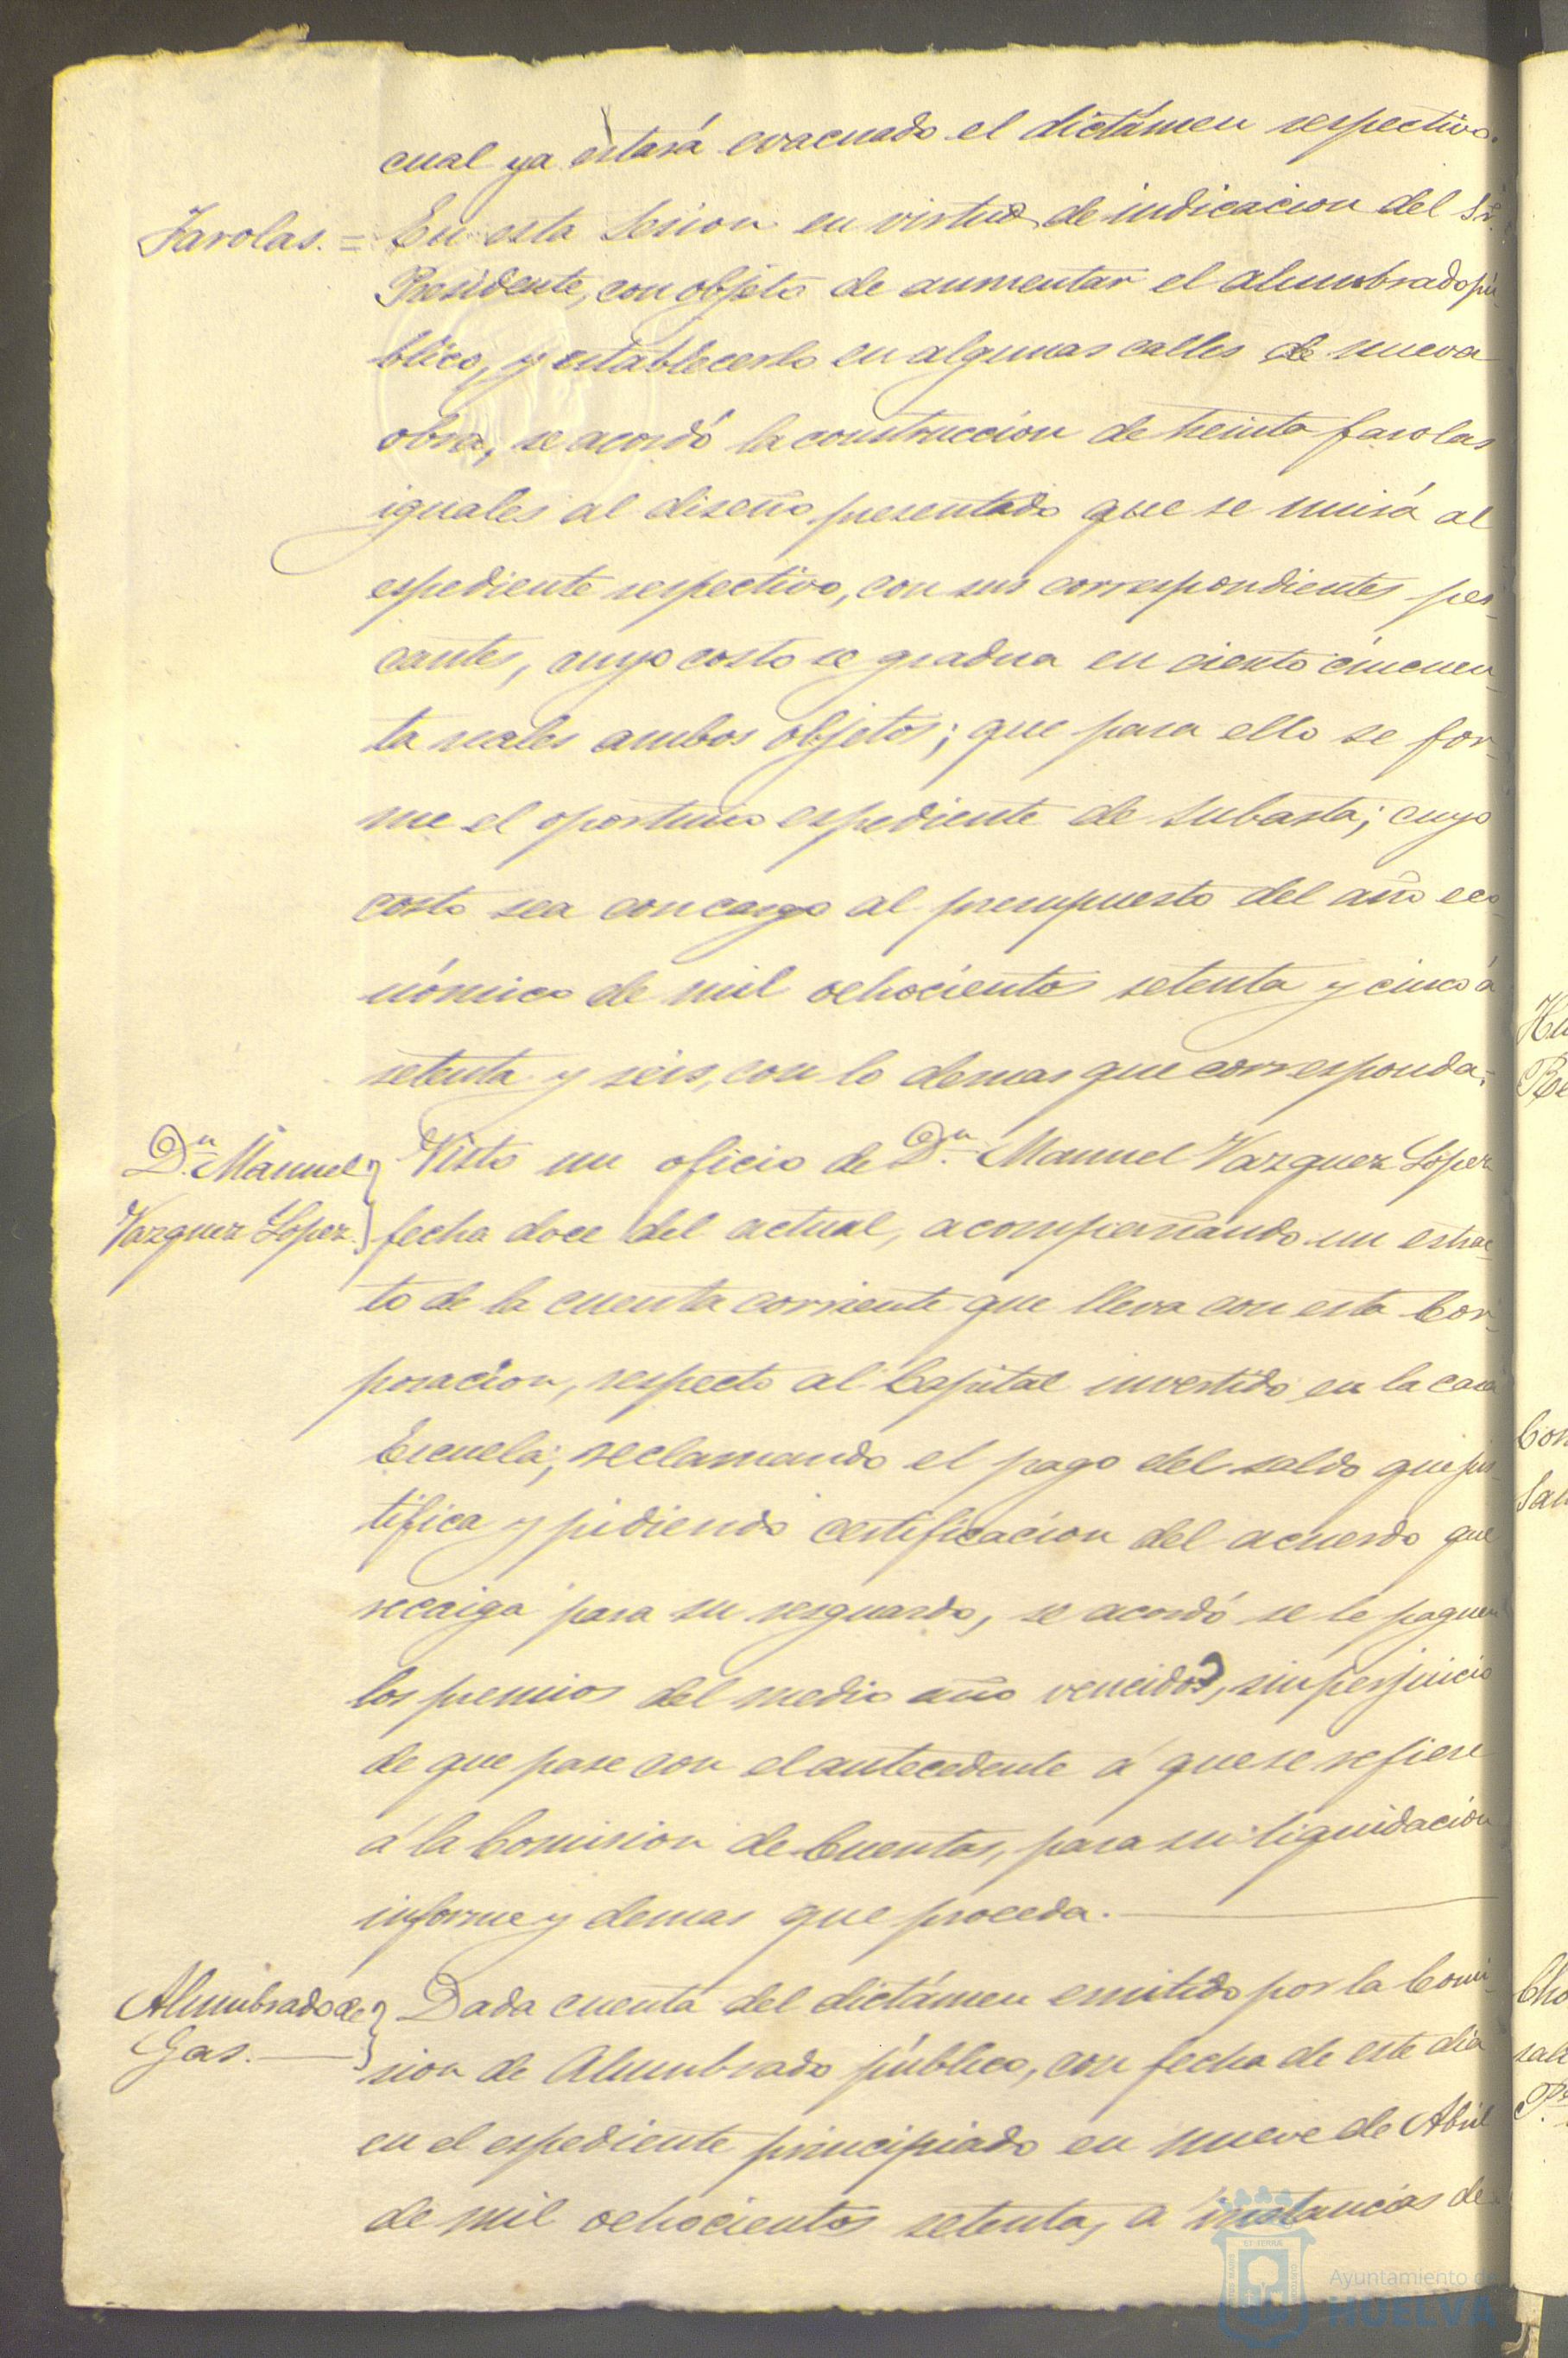 cual ya estará evacuado el dictámen respectivo.
Farolas. = En esta sesion en virtud de indicacion del Sr.
Presidente, con objeto de aumentar el alumbrado pú-
blico, y establecerlo en algunas calles de nueva
obra, se acordó la construccion de treinta farolas
iguales al diseño presentado que se unirá al
espediente respectivo, con sus correspondientes pes-
cantes, cuyo costo se gradua en ciento cincuen-
ta reales ambos objetos; que para ello se for-
me el oportuno espediente de subasta; cuyo
costo sea con cargo al presupuesto del año eco-
nómico de mil ochocientos setenta y cinco á
setenta y seis, con lo demas que corresponda.
Dn. Manuel Visto un oficio de Dn. Manuel Vazquez Lopez
Vazquez Lopez. fecha doce del actual, acompañando un estrac-
to de la cuenta corriente que lleva con esta Cor-
poracion, respecto al Capital invertido en la casa
Escuela; reclamando el pago del saldo que jus-
tifica y pidiendo certificacion del acuerdo que
recaiga para su resguardo, se acordó se le paguen
los premios del medio año vencido, sin perjuicio
de que pase con el antecedente á que se refiere
á la Comision de Cuentas, para su liquidacion
informe y demas que proceda.
Alumbrado de Dada cuenta del dictámen emitido por la Comi-
Gas. sion de Alumbrado público, con fecha de este dia
en el espediente principiado en nueve de Abril
de mil ochocientos setenta, á instancias de
Ayuntamiento de
HUELVA